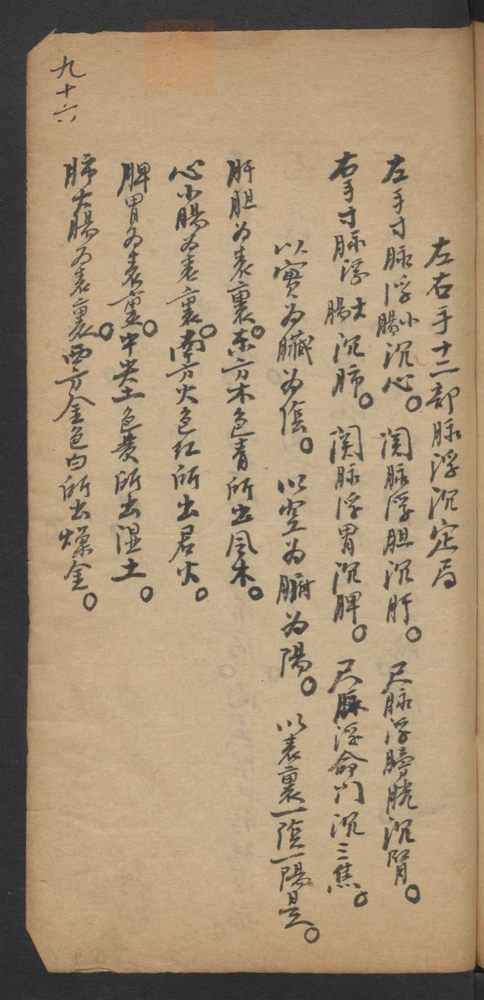 左右手十二部脉浮沉定局
左手寸脉浮小腸沉心。関脉浮胆沉肝。尺脉浮膀胱沉腎。
右手寸脉浮大腸沉肺。関脉浮胃沉脾。尺脉浮命门沉三焦。
以實为臟为陰。以空为腑为陽。以表裏一陰一陽是。
肝胆为表裏。东方木色青所出風木。
心小腸为表裏。南方火色红所出君火。
脾胃为表裏。中央土色黄所出湿土。
肺大腸为表裏。西方金色白所出燥金。
九十六